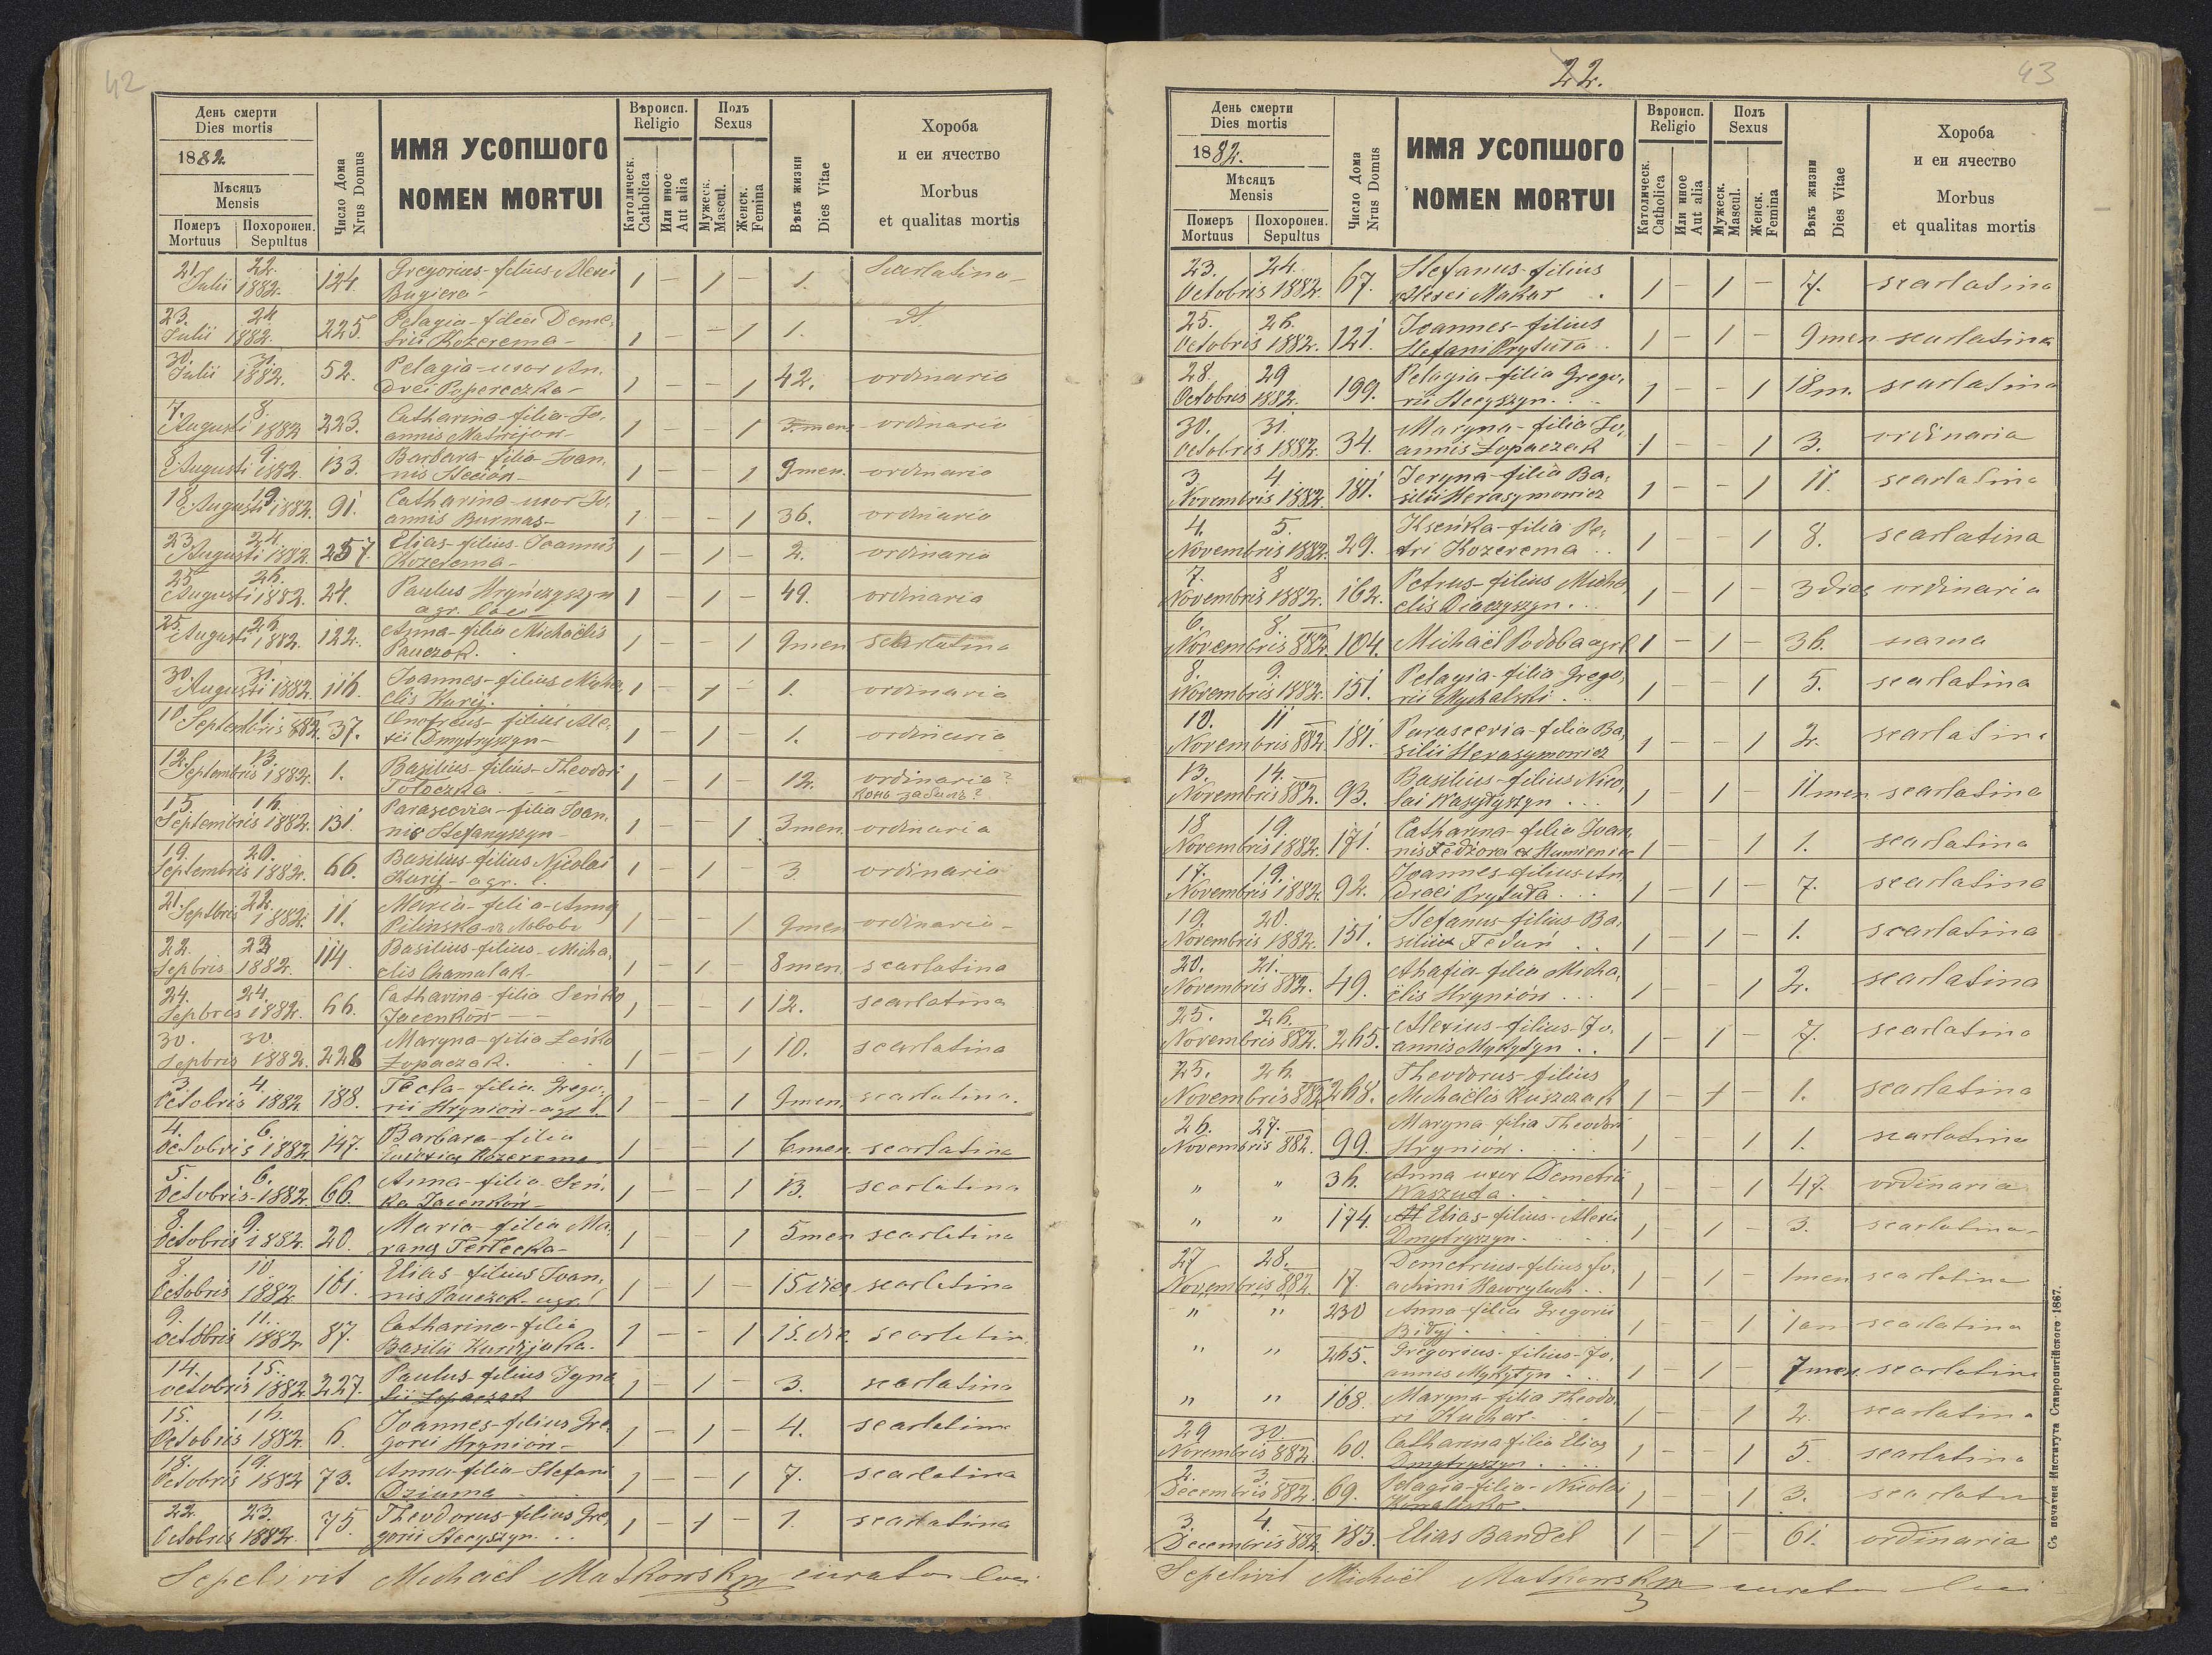 42
День смерти
Dies mortis
1882
Мѣсяцъ
Mensis
Померъ Похоронен.
Mortuus Sepultus
Число Дома
Nrus Domus
ИМЯ УСОПШОГО
NOMEN MORTUI
Вѣроисп.
Religio
Католическ.
Catholica
Или иное
Aut alia
Полъ
Sexus
Мужеск.
Mascul.
Женск.
Femina
Вѣкъ жизни
Dies Vitae
Хороба
и еи ячество
Morbus
et qualitas mortis
21. 22. Gregorius - filius Alexei
Julii 1882. 124. Bugiera - 1 - 1 - 1. Scarlatina -
23. 24. Pelagia - filia Deme,
Julii 1882. 225. trii Kozerema - 1 - - 1 1. dt.
30. 31. Pelagia - uxor An,
Julii 1882. 52. drei Papereczka - 1 - - 1 42. ordinaria
7. 8. Catharina - filia Jo,
Augusti 1882 223. annis Matrijon - 1 - - 1 3 men. ordinaria
8. 9. Barbara - filia Joan,
Augusti 1882 133. nis Steciów - 1 - - 1 9 men. ordinaria
18. 19. Catharina - uxor Jo,
Augusti 1882. 91. annis Burmas - 1 - - 1 36. ordinaria
23. 24. Elias - filius Joannis
Augusti 1882. 257. Kozerema - 1 - 1 - 2. ordinaria
25 26. Paulus Hryńczyszyn
Augusti 1882. 24. agr. loci 1 - 1 - 49. ordinaria
25. 26. Anna - filia Michaëlis
Augusti 1882. 122. Pauczak. 1 - - 1 9 men scarlatina
30. 31. Joannes - filius Micha,
Augusti 1882. 116. elis Kurij. 1 - 1 - 1. ordinaria
10 11. Onofrius - filius Ale,
Septembris 882. 37. xii Dmytryszyn - 1 - 1 - 1. ordinaria
12. 13. Basilius - filius - Theodori
Septembris 1882. 1. Tołoczka 1 - 1 12. ordinaria?
конь забилъ?
15. 16. Parascevia - filia Joan,
Septembris 1882. 131. nis Stefanyszyn - 1 - - 1 3 men. ordinaria
19. 20. Basilius - filius Nicolai
Septembris 1882. 66. Kurij - agr. l. 1 - 1 - 3 ordinaria
21. 22. Maria - filia - Anna
Septbris 1882. 11. Pilinska 1 - - 1 9 men ordinaria -
22. 23 Basilius - filius - Micha,
Sepbris 1882. 114. elis Chamulak - 1 - 1 - 8 men. scarlatina
24. 24. Catharina - filia Seńko
Sepbris 1882. 66. Jacenków - 1 - - 1 12. scarlatina
30. 30. Maryna - filia Leśko
Sepbris 1882. 228 Łopaczak. 1 - - 1 10. scarlatina
3. 4. Tecla - filia Grego,
Octobris 1882. 188. rii Hryniów - agr. l. 1 - - 1 9 men. scarlatina.
4. 6. Barbara - filia
Octobris 1882 147. Kozerema 1 - - 1 6 men. scarlatina
5. 6. Anna - filia Seń,
Octobris - 1882. 66. ka Jacenków - 1 - - 1 13. scarlatina
8. 9. Maria - filia Ma,
Octobris 1882. 20. ryna Terlecka - 1 - - 1 5 men scarlatina
8 10 Elias filius Joan,
Octobris 1882. 161. nis Pauczak - agr. l. 1 - 1 - 15 dies scarlatina
9. 11. Catharina - filia
Octobris 1882. 87. Basilii Kurdzjuka. 1 - - 1 15. die. scarlatin
14. 15. Paulus filius Igna
Octobris 1882 227. tii Łopaczak 1 - 1 - 3. scarlatina
15. 16. Joannes - filius Gre,
Octobris 1882. 6. gorii Hryniów - 1 - 1 - 4. scarlatina
18. 19. Anna - filia Stefani
Octobris 1882 73. Dziuma 1 - - 1 7. scarlatina
22. 23. Theodorus - filius Gre,
Octobris 1882. 75. gorii Stecyszyn. 1 - 1 - 1. scarlatina
Sepelivit Michaël Matkowskyj curator loci
22.
43
День смерти
Dies mortis
1882.
Мѣсяцъ
Mensis
Померъ Похоронен.
Mortuus Sepultus
Число Дома
Nrus Domus
ИМЯ УСОПШОГО
NOMEN MORTUI
Вѣроисп.
Religio
Католическ.
Catholica
Или иное
Aut alia
Полъ
Sexus
Мужеск.
Mascul.
Женск.
Femina
Вѣкъ жизни
Dies Vitae
Хороба
и еи ячество
Morbus
et qualitas mortis
23. 24. Stefanus - filius
Octobris 1882. 67. Alexei Makar . 1 - 1 - 7. scarlatina
25. 26. Joannes - filius
Octobris 1882. 121. Stefani Prytuła . 1 - 1 - 9 men scarlatina
28. 29 Pelagia - filia Grego,
Octobris 1882. 199. rii Stecyszyn. 1 - - 1 18 m. scarlatina
30. 31. Maryna - filia Jo,
Octobris 1882. 34. annis Łopaczak 1 - - 1 3. ordinaria
3. 4. Jeryna - filia Ba,
Novembris 1882. 181. silii Herasymowicz 1 - - 1 11. scarlatina
4. 5. Kseńka - filia Pe,
Novembris 1882. 29. tri Kozerema . 1 - - 1 8. scarlatina
7. 8 Petrus - filius Micha,
Novembris 1882. 162. elis Diaczyszyn. 1 - 1 - 3 dies ordinaria
6. 8.
Novembris 882 104. Michaël Podoba agr. l 1 - 1 - 36.
8. 9. Pelagia - filia Grego,
Novembris 1882. 151. rii Mychalski . 1 - - 1 5. scarlatina
10. 11 Parascevia - filia Ba,
Novembris 882 181. silii Herasymowicz 1 - - 1 2. scarlatina
13. 14. Basilius - filius Nico,
Novembris 882. 93. lai Wasydyszyn . 1 - 1 - 11 men scarlatina
18 19. Catharina - filia Joan,
Novembris 1882. 171. nis Fedżora ex Humieniec 1 - - 1 1. scarlatina
17. 19. Joannes - filius An,
Novembris 1882. 92. drei Prytuła . 1 - 1 - 7. scarlatina
19. 20. Stefanus - filius Ba,
Novembris 1882. 151. silii Feduń 1 - 1 - 1. scarlatina
20. 21. Ahafia - filia Micha,
Novembris 882. 49. ëlis Hryniów . 1 - - 1 2. scarlatina
25. 26. Alexius - filius - Jo,
Novembris 882. 265. annis Mykytyn . 1 - 1 - 7. scarlatina
25. 26. Theodorus - filius
Novembris 882 268. Michaëlis Kuszczak 1 - 1 - 1. scarlatina
26. 27. Maryna filia Theodori
Novembris 882. 99. Hryniów. 1 - - 1 1. scarlatina
" " 36. Anna uxor Demetrii
Waszuda . 1 - - 1 47. ordinaria
" " 174. Elias - filius - Alexii
Dmytryszyn. 1 - 1 - 3. scarlatina -
27 28. Demetrius - filius Jo,
Novembris 882. 17. achimi Hawryluk . 1 - 1 - 1 men scarlatina
" " 230 Anna - filia Gregorii
Bidyj . 1 - - 1 1 an scarlatina
" " 265. Gregorius - filius - Jo,
annis Mykytyn 1 - 1 - 7 men. scarlatina
" " 168. Maryna - filia Theodo,
ri Kuchar - 1 - - 1 2. scarlatina
29 30. Catharina filia Elias
Novembris 882. 60. Dmytryszyn . 1 - - 1 5. scarlatina
2. 3. Pelagia - filia - Nicolai
Decembris 882. 69. 1 - - 1 3. scarlatin
3. 4.
Decembris 882. 183. Elias Bandel 1 - 1 - 61. ordinaria
Sepelivit Michaël Matkowskyj curator loci
Съ печатни Института Ставропигійского 1867.